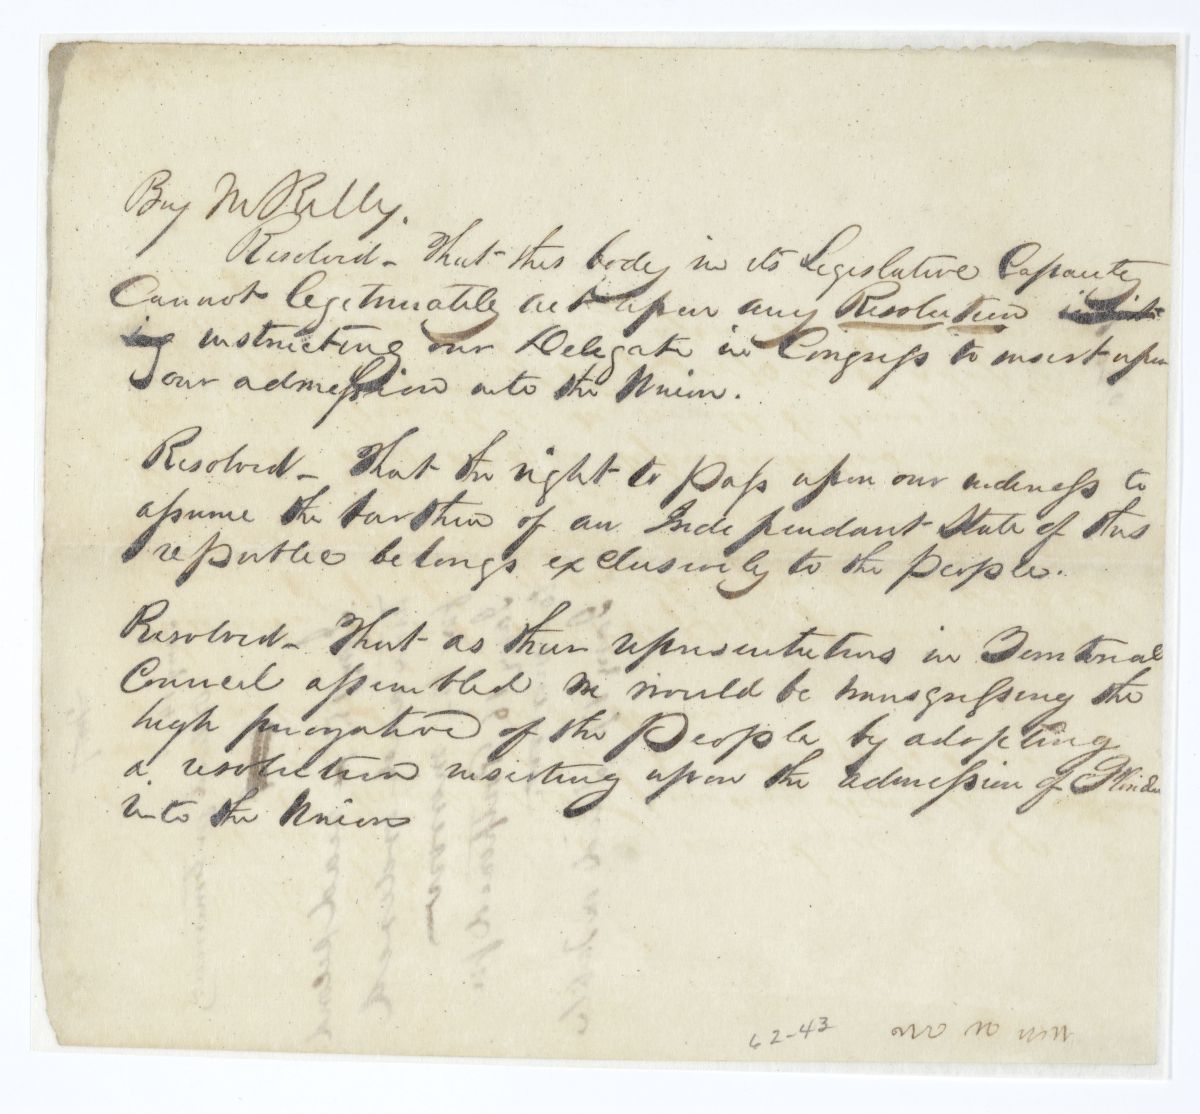 By Mr Kelly.
Resolved - That this body in its Legislative Capacity
Cannot legitimately act upon any Resolution
instructing our Delegate in Congress to insist upon
our admission into the Union.
Resolved - That the right to pass upon our rediness to
assume the burthen of an Independant State of this
republic belongs exclusively to the people.
Resolved - That as their representatives in Territorial
Council assembled we would be transgressing the
high prerogative of the People by adopting
a resolution insisting upon the admission of Florida
into the Union
62-43